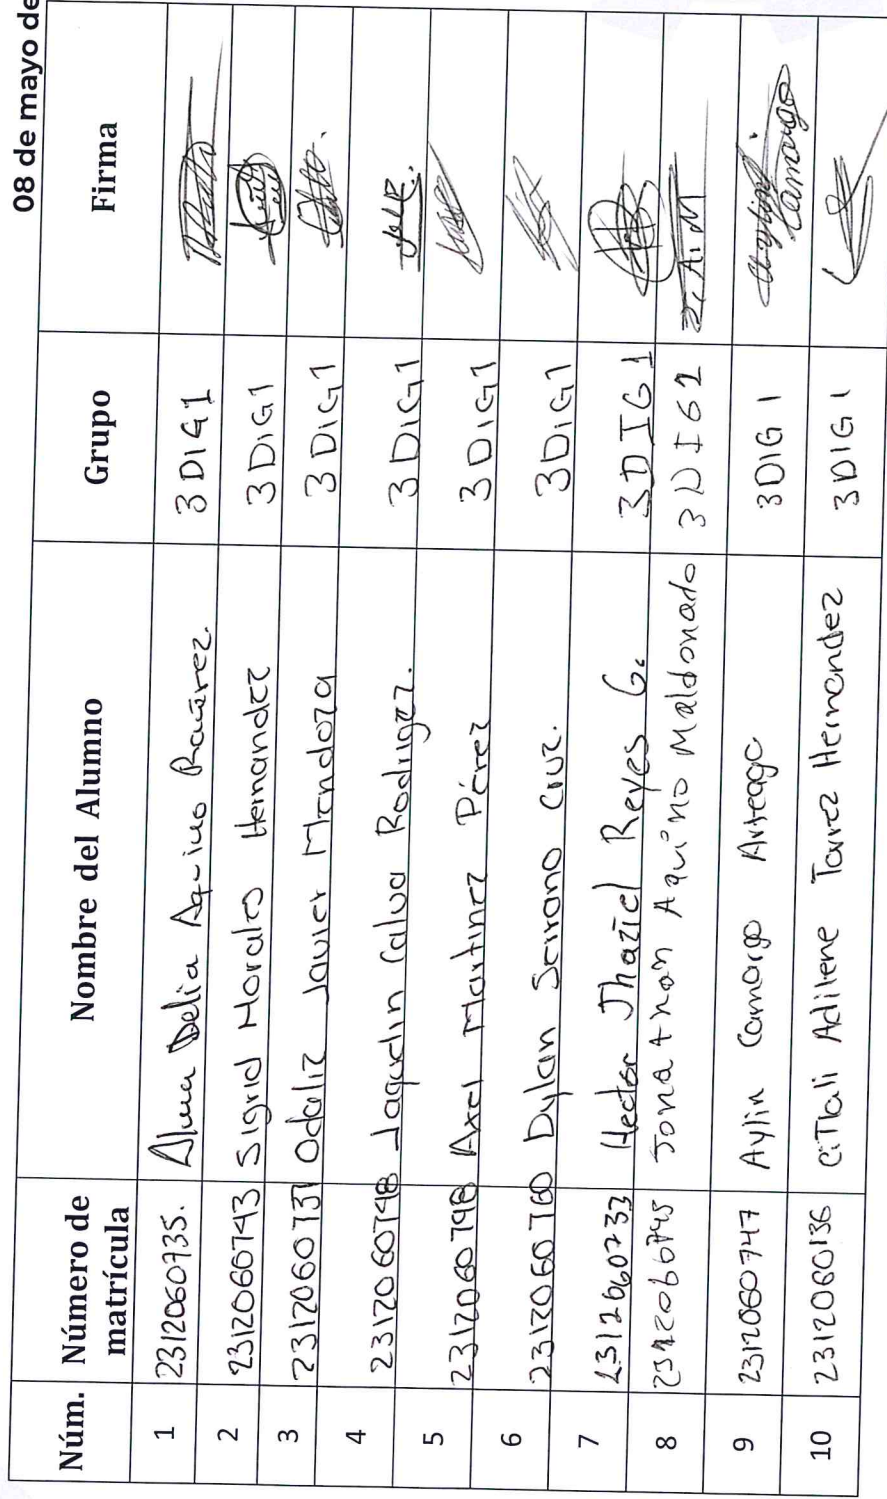 08 de mayo de
Núm. Número de matrícula Nombre del Alumno Grupo Firma
1 2312060735. Alma Delia Aquino Ramírez. 3DIG1
2 2312060743 Sigrid Morales Hernandez 3DIG1
3 2312060737 Odaliz Javier Mendoza 3DIG1
4 2312060748 Jaquelin Calva Rodriguez. 3DIG1
5 2312060798 Axel Martinez Pérez 3DIG1
6 2312060760 Dylan Serrano Cruz. 3DIG1
7 2312060733 Hector Jhaziel Reyes G. 3DIG1
8 Jonathan Aquino Maldonado 3DIG1 J.A.M
9 2312060747 Aylin Camargo Arteaga 3DIG1 Aylin Camargo
10 2312060136 Citlali Adilene Torrez Hernandez 3DIG1